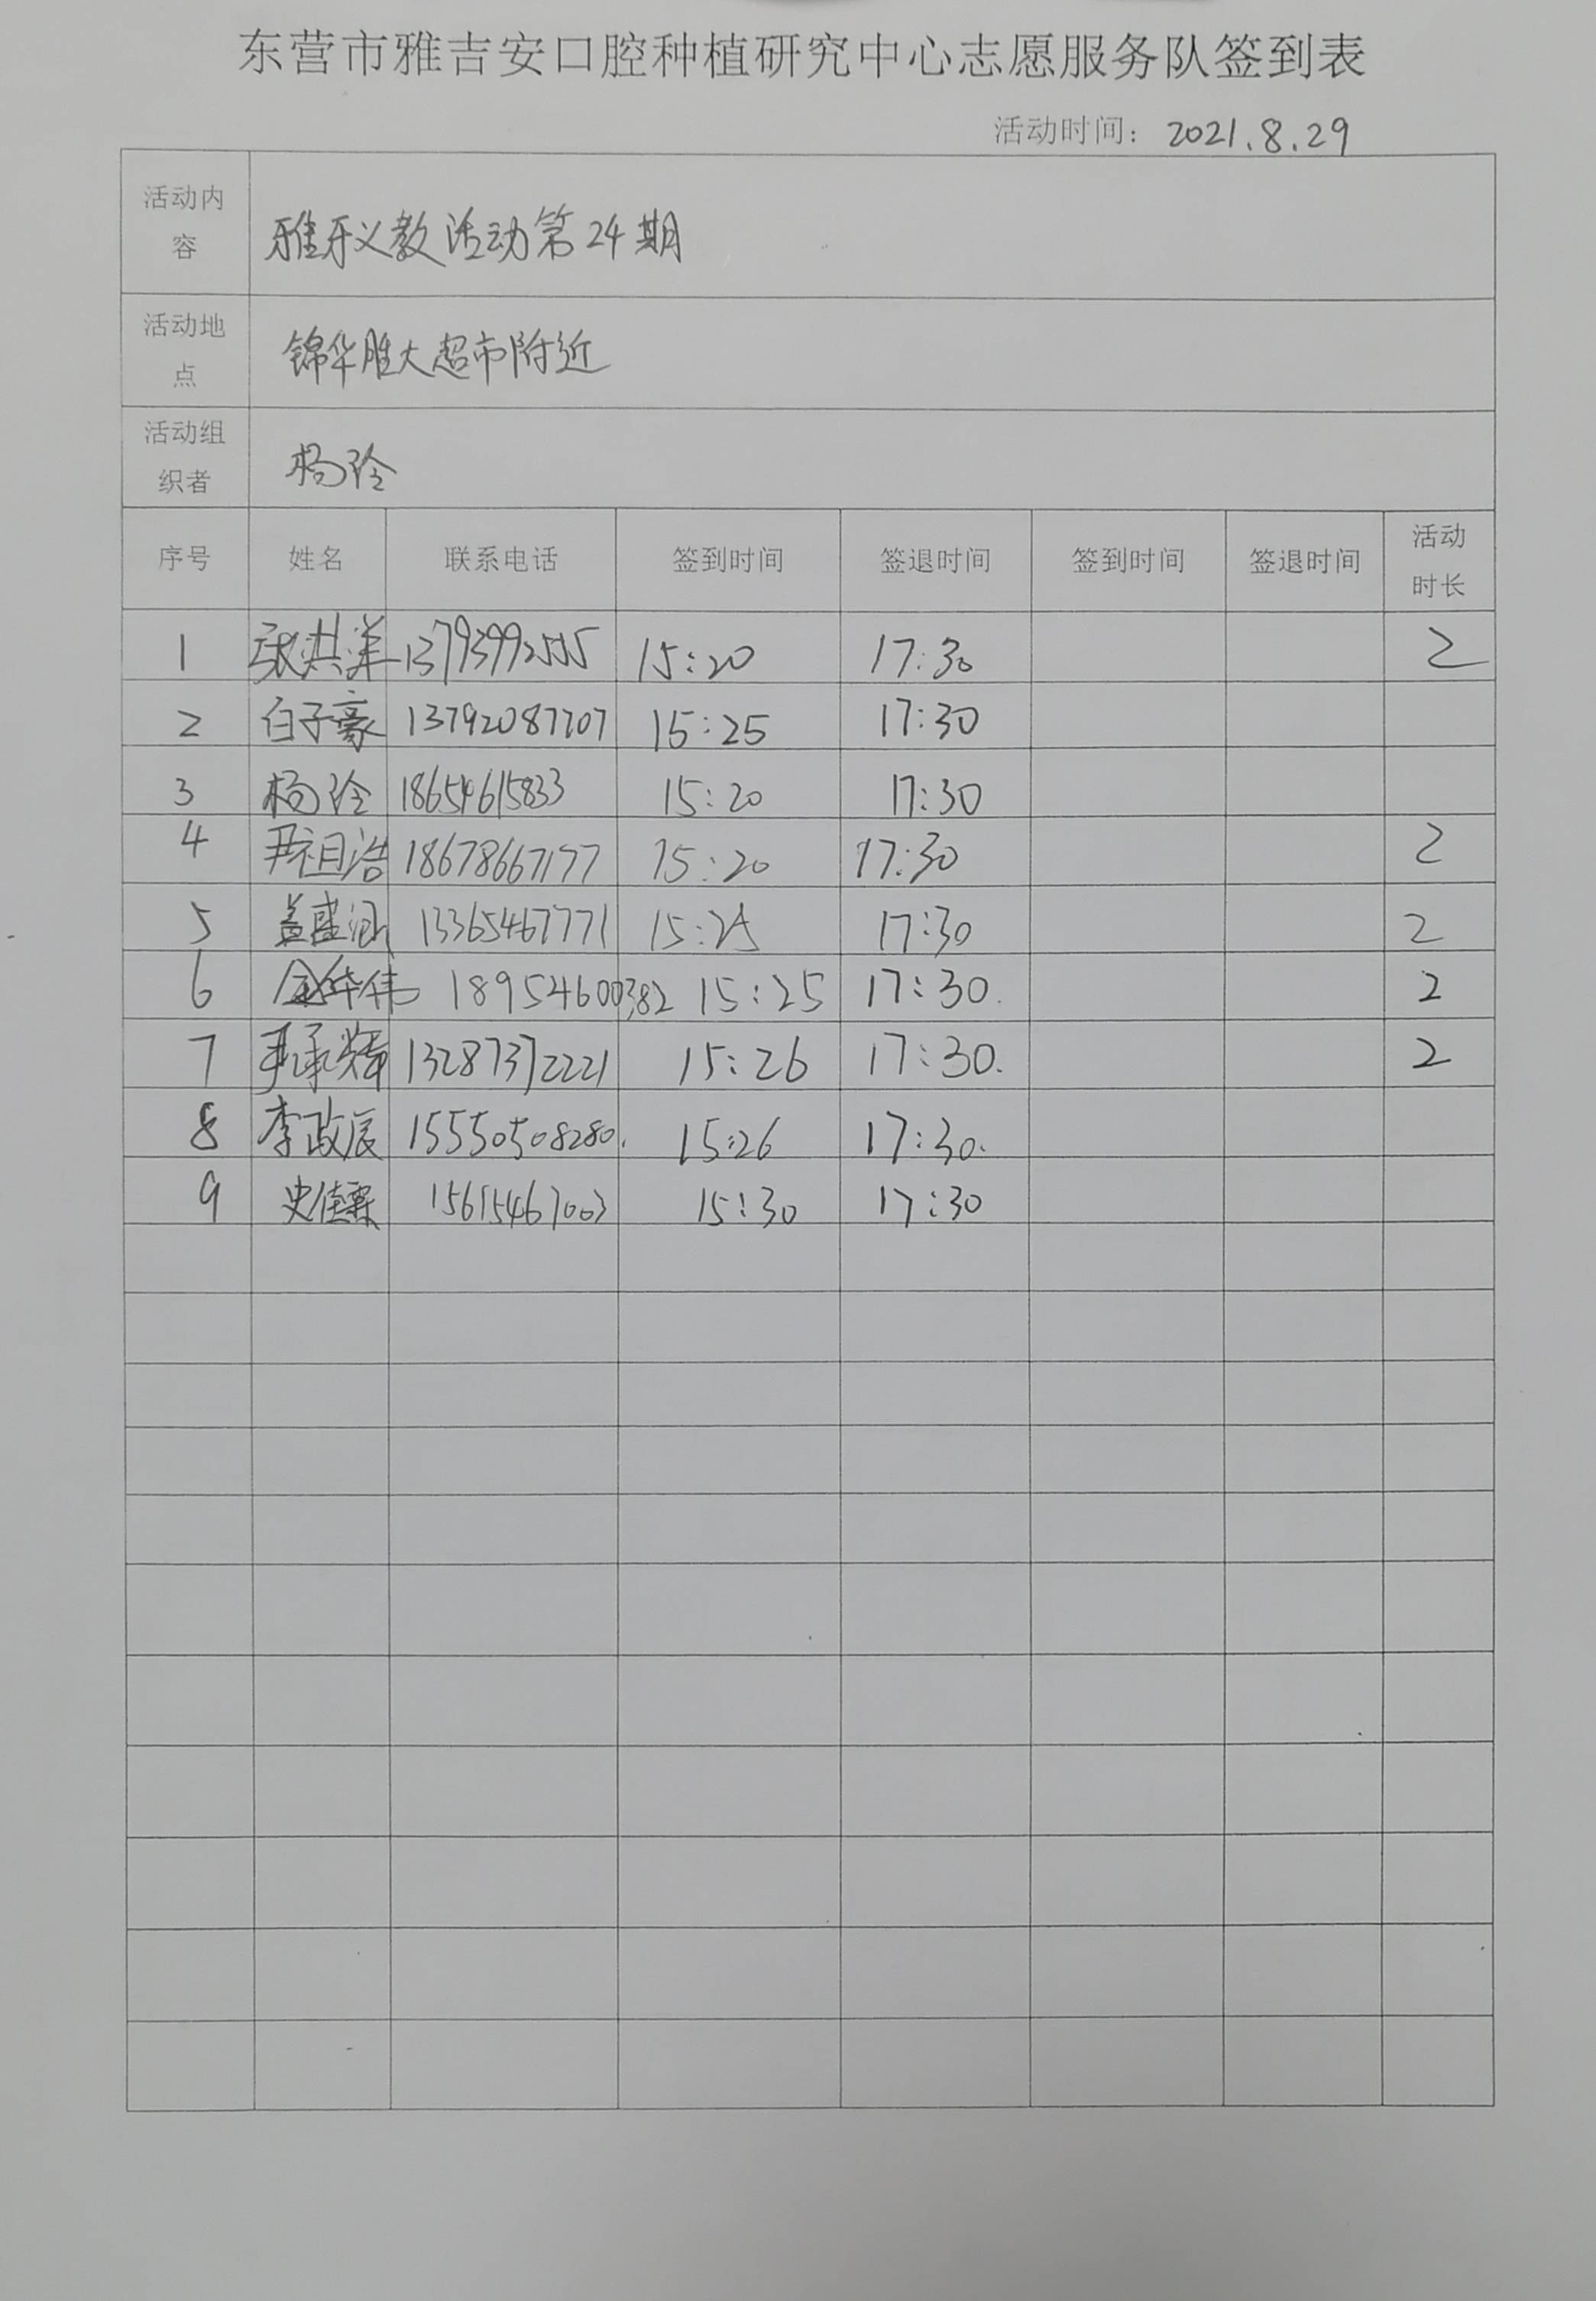 东营市雅吉安口腔种植研究中心志愿服务队签到表
活动时间：2021.8.29
活动内容 雅牙义教活动第24期
活动地点 锦华胜大超市附近
活动组织者 杨玲
序号 姓名 联系电话 签到时间 签退时间 签到时间 签退时间 活动时长
1 张洪洋 15:20 17:30 2
2 白子豪 13792087707 15:25 17:30
3 杨玲 18654615833 15:20 17:30
4 尹祖浩 18678667177 15:20 17:30 2
5 盖盛涵 13365467771 15:25 17:30 2
6 华伟 18954600382 15:25 17:30. 2
7 13287372221 15:26 17:30. 2
8 李政辰 15550508280. 15:26 17:30.
9 史佳霖 15615467003 15:30 17:30